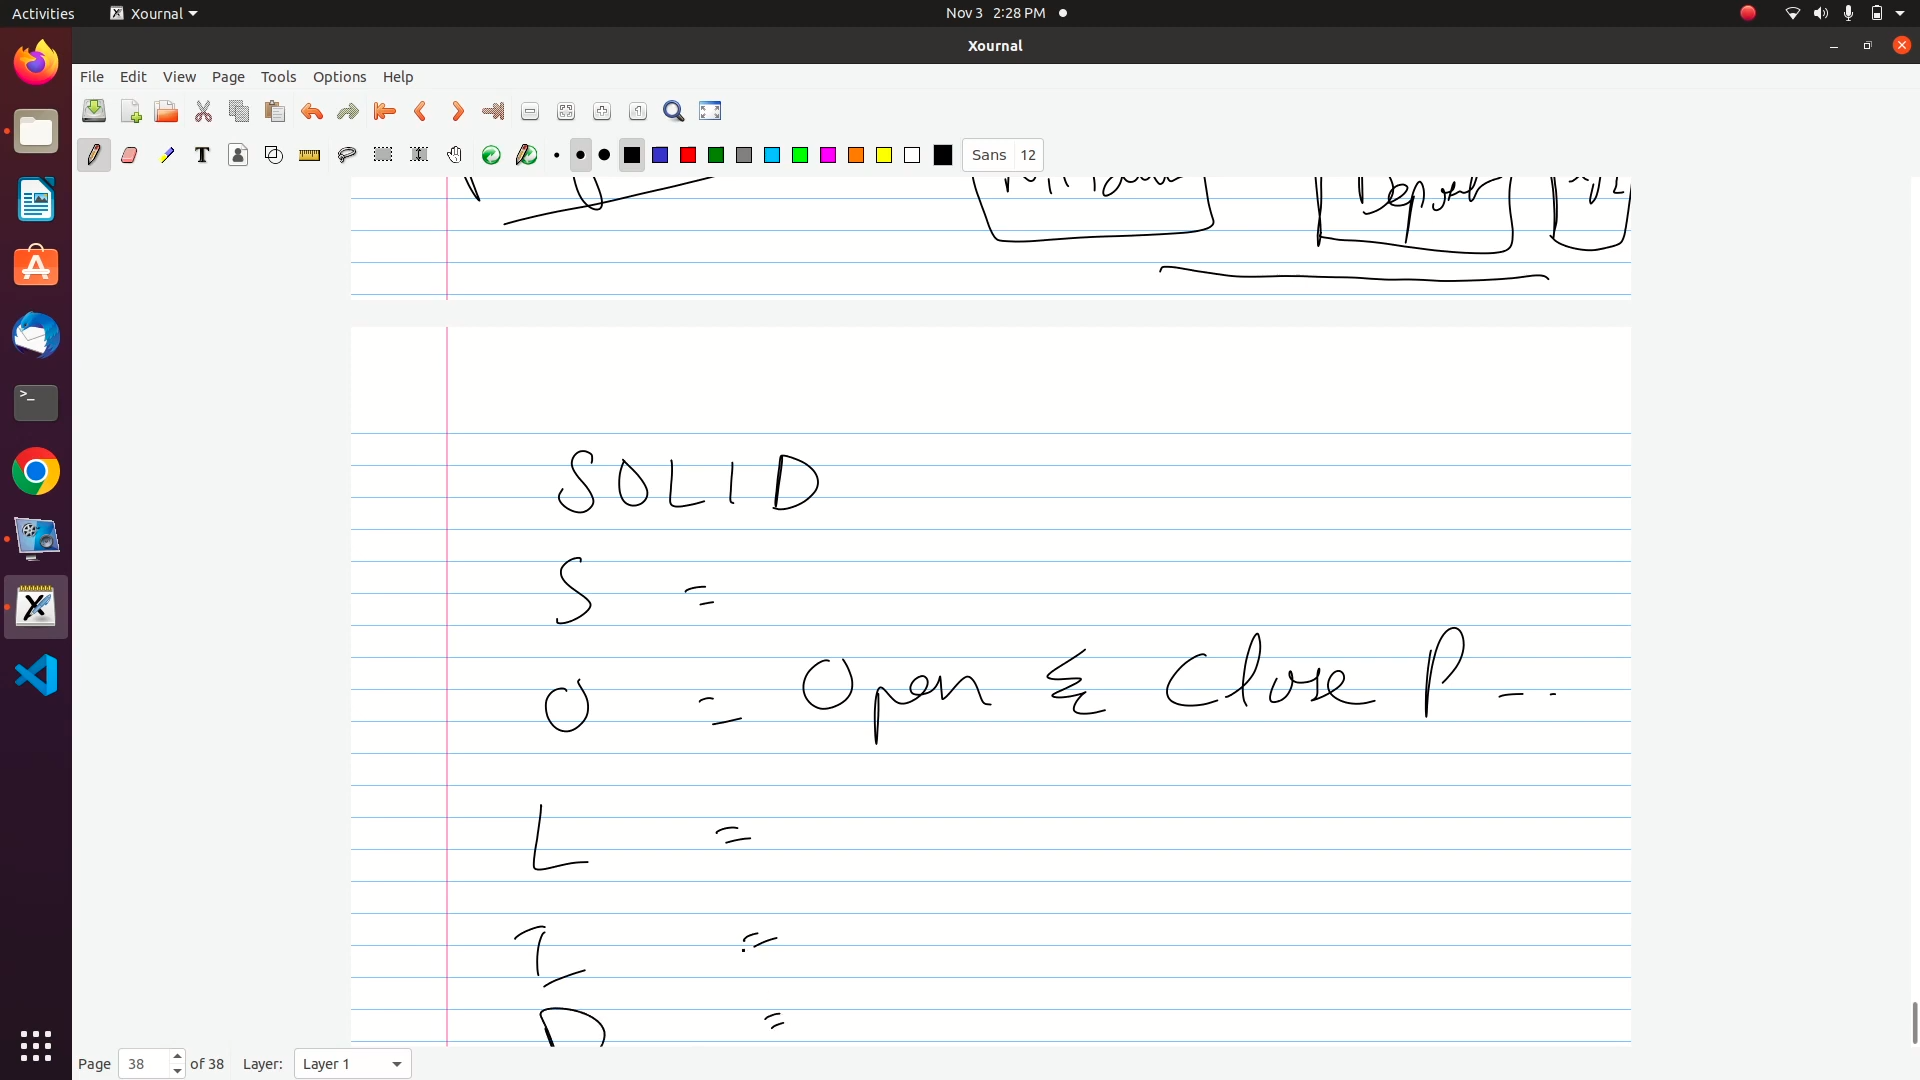 Activities Xournal Nov 3 2:28 PM
Xournal
File Edit View Page Tools Options Help
Sans 12
SOLID
S =
O = Open & Close P - .
L =
I =
D =
Page 38 of 38 Layer: Layer 1